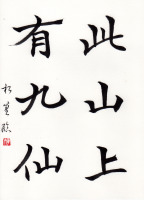 此山上
有九仙